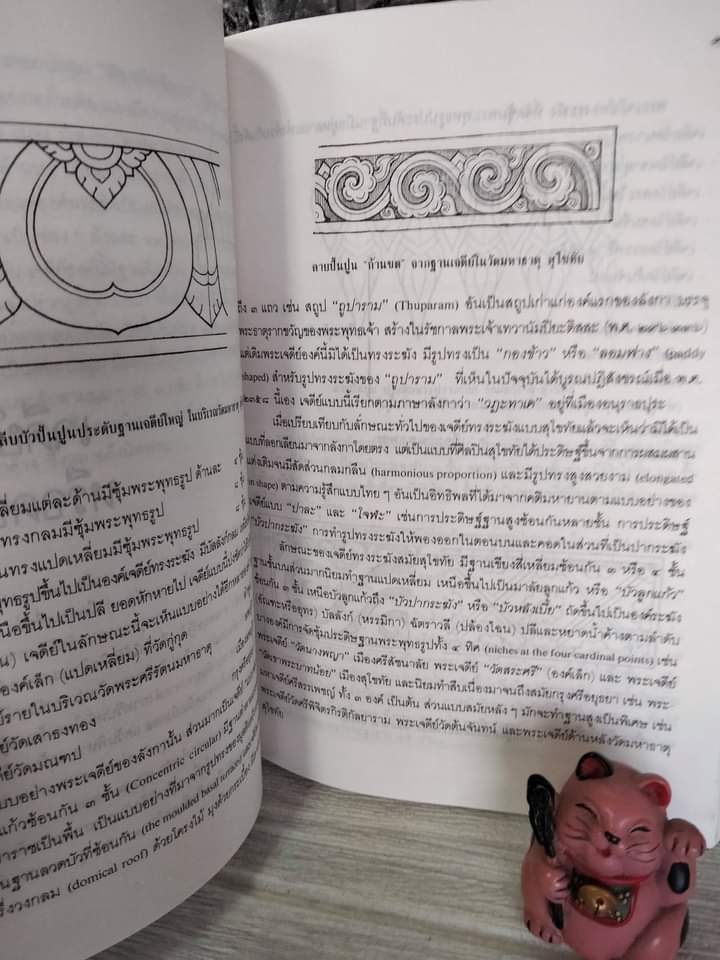 ลีบบัวปั้นปูนประดับฐานเจดีย์ใหญ่ ในบริเวณวัดมหาธาตุ
ลี่ยมแต่ละด้านมีซุ้มพระพุทธรูป ด้านละ
ทรงกลมมีซุ้มพระพุทธรูป
นทรงแปดเหลี่ยมมีซุ้มพระพุทธรูป
ทุธรูปขึ้นไปเป็นองค์เจดีย์ทรงระฆัง มีบัลลังก์กลม
หนือขึ้นไปเป็นปลี ยอดหักหายไป เจดีย์แบบนี้
น) เจดีย์ในลักษณะนี้จะเห็นแบบอย่างได้อีก
องค์เล็ก (แปดเหลี่ยม) ที่วัดกู่กุด
ย์รายในบริเวณวัดพระศรีรัตนมหาธาตุ
ดีย์วัดเสาธงทอง
ดีย์วัดมณฑป
บบอย่างพระเจดีย์ของลังกานั้น ส่วนมากเป็นเจดีย์
แก้วซ้อนกัน ๓ ชั้น (Concentric circular) มีฐานล่าง
าราชเป็นพื้น เป็นแบบอย่างที่มาจากรูปทรงของ
นฐานลวดบัวที่ซ้อนกัน (the moulded basal terraces)
รึ่งวงกลม (domical roof) ด้วยโครงไม้ มุงด้วยกระเบื้อง
ลายปั้นปูน "ก้านขด" จากฐานเจดีย์ในวัดมหาธาตุ สุโขทัย
ถึง ๓ แถว เช่น สถูป "ถูปาราม" (Thuparam) อันเป็นสถูปเก่าแก่องค์แรกของลังกา บรรจุ
พระธาตุรากขวัญของพระพุทธเจ้า สร้างในรัชกาลพระเจ้าเทวานัมปิยะติสสะ (พ.ศ.
แต่เดิมพระเจดีย์องค์นี้มิได้เป็นทรงระฆัง มีรูปทรงเป็น "กองข้าว" หรือ "ลอมฟาง" (paddy
shaped) สำหรับรูปทรงระฆังของ "ถูปาราม" ที่เห็นในปัจจุบันได้บูรณปฏิสังขรณ์เมื่อ พ.ศ.
๒๓๘๕ นี้เอง เจดีย์แบบนี้เรียกตามภาษาลังกาว่า "วฏะทาเค" อยู่ที่เมืองอนุราธปุระ
เมื่อเปรียบเทียบกับลักษณะทั่วไปของเจดีย์ทรงระฆังแบบสุโขทัยแล้วจะเห็นว่ามิได้เป็น
แบบที่ลอกเลียนมาจากลังกาโดยตรง แต่เป็นแบบที่ศิลปินสุโขทัยได้ประดิษฐ์ขึ้นจากการผสมผสาน
แต่งเติมจนมีสัดส่วนกลมกลืน (harmonious proportion) และมีรูปทรงสูงสวยงาม (elongated
in shape) ตามความรู้สึกแบบไทย ๆ อันเป็นอิทธิพลที่ได้มาจากคติมหายานตามแบบอย่างของ
เจดีย์แบบ "ปาละ" และ "ไจฬะ" เช่นการประดิษฐ์ฐานสูงซ้อนกันหลายชั้น การประดิษฐ์
"บัวปากระฆัง" การทำรูปทรงระฆังให้พองออกในตอนบนและคอดในส่วนที่เป็นปากระฆัง
ลักษณะของเจดีย์ทรงระฆังสมัยสุโขทัย มีฐานเขียงสี่เหลี่ยมซ้อนกัน ๓ หรือ ๔ ชั้น
ฐานชั้นบนส่วนมากนิยมทำฐานแปดเหลี่ยม เหนือขึ้นไปเป็นมาลัยลูกแก้ว หรือ "บัวลูกแก้ว"
ซ้อนกัน ๓ ชั้น เหนือบัวลูกแก้วถึง "บัวปากระฆัง" หรือ "บัวหลังเบี้ย" ถัดขึ้นไปเป็นองค์ระฆัง
(อัณฑะหรืออุทร) บัลลังก์ (หรรมิกา) ฉัตราวลี (ปล้องไฉน) ปลีและหยาดน้ำค้างตามลำดับ
บางองค์มีการจัดซุ้มประดิษฐานพระพุทธรูปทั้ง ๔ ทิศ (niches at the four cardinal points) เช่น
พระเจดีย์ "วัดนางพญา" เมืองศรีสัชนาลัย พระเจดีย์ "วัดสระศรี" (องค์เล็ก) และ พระเจดีย์
"วัดเขาพระบาทน้อย" เมืองสุโขทัย และนิยมทำสืบเนื่องมาจนถึงสมัยกรุงศรีอยุธยา เช่น พระ
มหาเจดีย์ศรีสรรเพชญ์ ทั้ง ๓ องค์ เป็นต้น ส่วนสมัยหลัง ๆ มักจะทำฐานสูงเป็นพิเศษ เช่น
พระเจดีย์วัดศรีพิจิตรกิรติกัลยาราม พระเจดีย์วัดต้นจันทน์ และพระเจดีย์ด้านหลังวัดมหาธาตุ
สุโขทัย